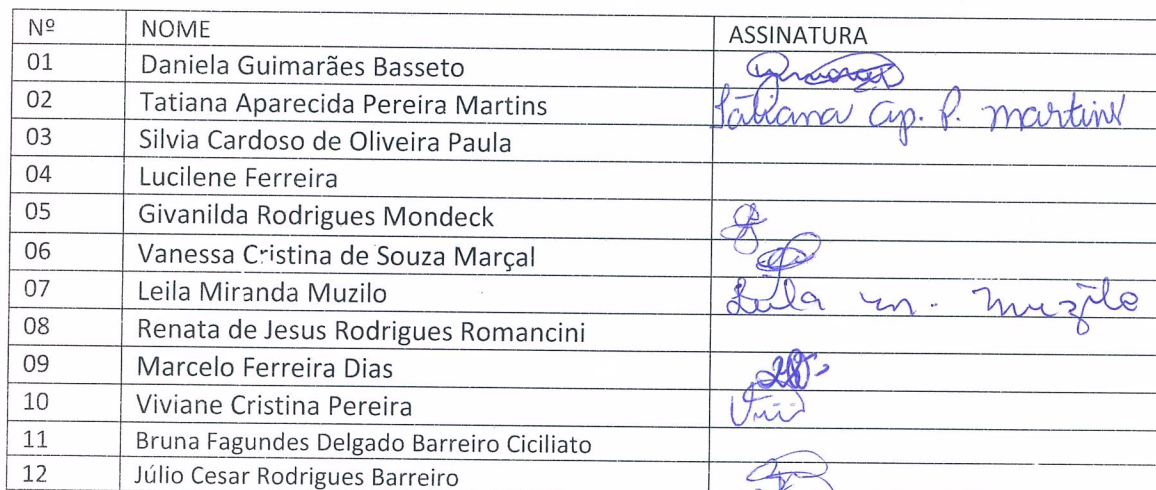 Nº NOME ASSINATURA
01 Daniela Guimarães Basseto
02 Tatiana Aparecida Pereira Martins Tatiana Ap. P. Martins
03 Silvia Cardoso de Oliveira Paula
04 Lucilene Ferreira
05 Givanilda Rodrigues Mondeck
06 Vanessa Cristina de Souza Marçal
07 Leila Miranda Muzilo Leila m. Muzilo
08 Renata de Jesus Rodrigues Romancini
09 Marcelo Ferreira Dias
10 Viviane Cristina Pereira
11 Bruna Fagundes Delgado Barreiro Ciciliato
12 Júlio Cesar Rodrigues Barreiro